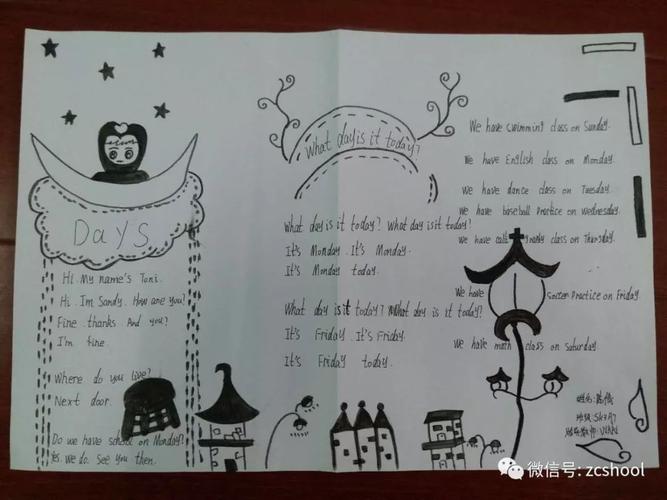 Days
Hi. My name's Toni.
Hi. I'm Sandy. How are you?
Fine thanks And you?
I'm fine.
Where do you live?
Next door.
Do we have school on Monday?
Yes. we do. See you then.
What day is it today?
What day is it today? What day is it today?
It's Monday. It's Monday.
It's Monday today.
What day is it today? What day is it today?
It's Friday. It's Friday
It's Friday today.
We have swimming class on Sunday.
We have English class on Monday.
We have dance class on Tuesday.
We have baseball Practice on Wednesday.
We have class on Thursday.
We have Soccer Practice on Friday
We have math class on Saturday
姓名:
班级:
微信号: zcshool